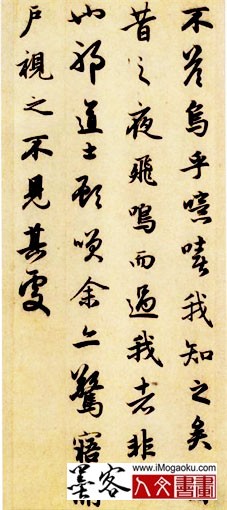 不荅烏乎噫嘻我知之矣
昔之夜飛鳴而過我者非
也邪道士顧咲余亦驚寤開
户視之不見其處
www.iMogaoku.com
墨客 人文書畫